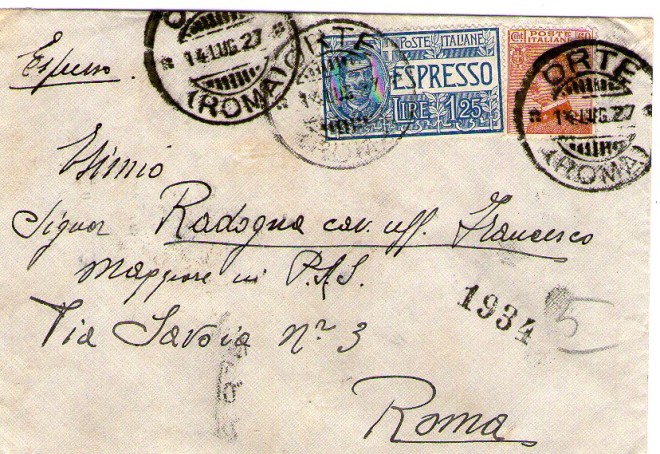 Espresso
ORTE
14 LUG 27
(ROMA)
POSTE ITALIANE
ESPRESSO
LIRE 1,25
POSTE ITALIANE
ORTE
14 LUG 27
(ROMA)
Esimio
Signor Radogna cav. uff. Francesco
Maggiore in P.A.S.
Via Savoia Nr 3
1934
5
Roma